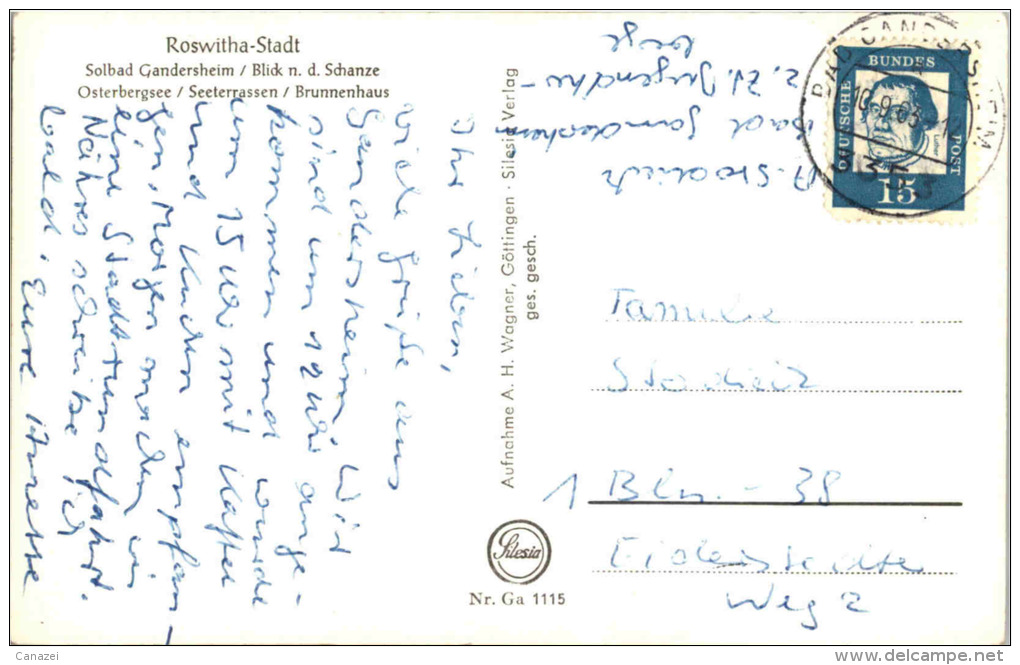 Roswitha-Stadt
Solbad Gandersheim / Blick n. d. Schanze
Osterbergsee / Seeterrassen / Brunnenhaus
Ihr Lieben,
viele Grüße aus
Gandersheim. Wir
sind um 12 Uhr ange-
kommen und wurde
um 15 Uhr mit Kaffee
und Kuchen empfan-
gen. Morgen machen wir
eine Stadtrundfahrt.
Nähres schreibe ich
bald. Eure Annette
Aufnahme A. H. Wagner, Göttingen · Silesia Verlag
ges. gesch.
Silesia
Nr. Ga 1115
A. Stodieck
z. Zt. Jugendher-
berge
Bad Gandersheim
BAD GANDERSHEIM
10.9.63
3353
DEUTSCHE BUNDESPOST
Luther
15
Familie
Stodieck
1 Bln. - 38
Eiderstedter
Weg 2
Canazei
www.delcampe.net